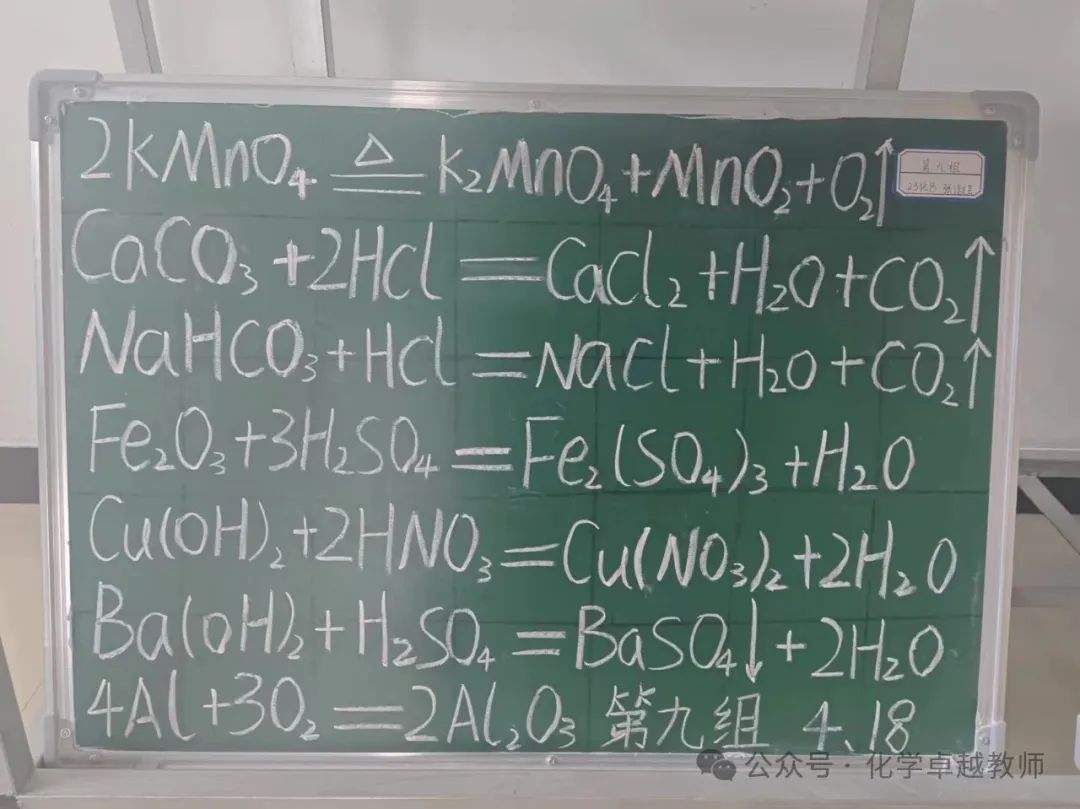 2KMnO₄ ≜ K₂MnO₄+MnO₂+O₂↑
第九组
CaCO₃+2HCl=CaCl₂+H₂O+CO₂↑
NaHCO₃+HCl=NaCl+H₂O+CO₂↑
Fe₂O₃+3H₂SO₄=Fe₂(SO₄)₃+H₂O
Cu(OH)₂+2HNO₃=Cu(NO₃)₂+2H₂O
Ba(OH)₂+H₂SO₄=BaSO₄↓+2H₂O
4Al+3O₂=2Al₂O₃ 第九组 4、18
公众号·化学卓越教师